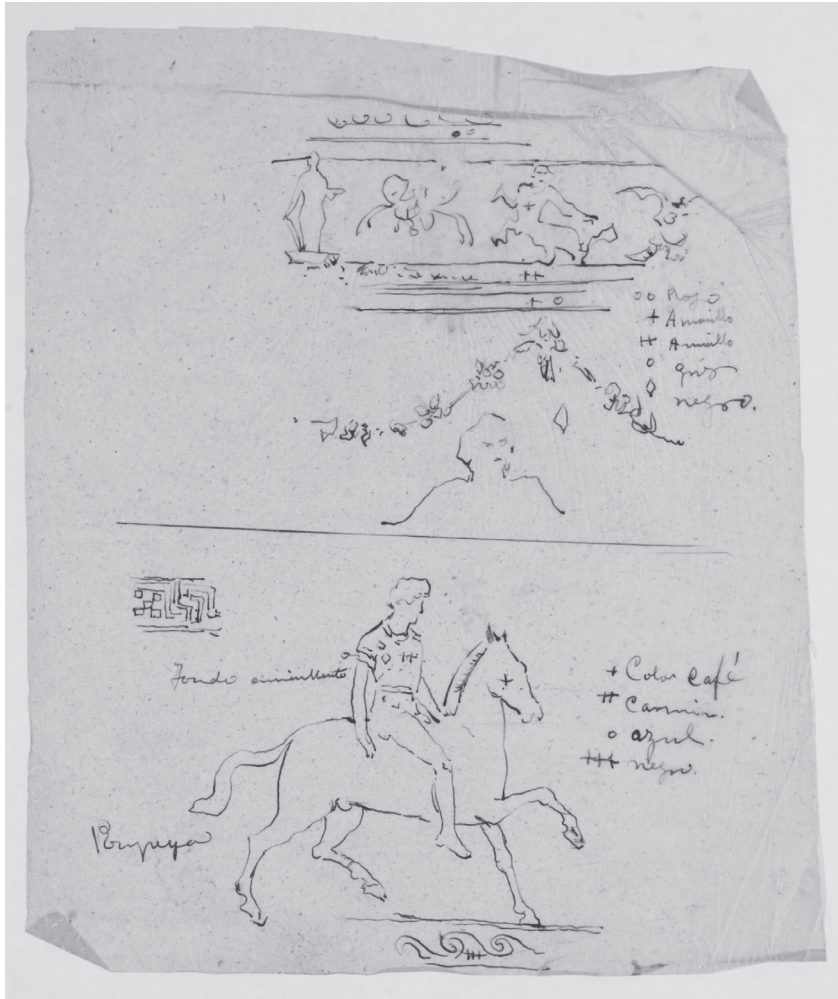 oo Rojo
+ Amarillo
++ Amarillo
o gris
◊ negro.
Fondo amarillento
+ Color Café
++ Carmin.
o azul.
+++ negro.
Pompeya